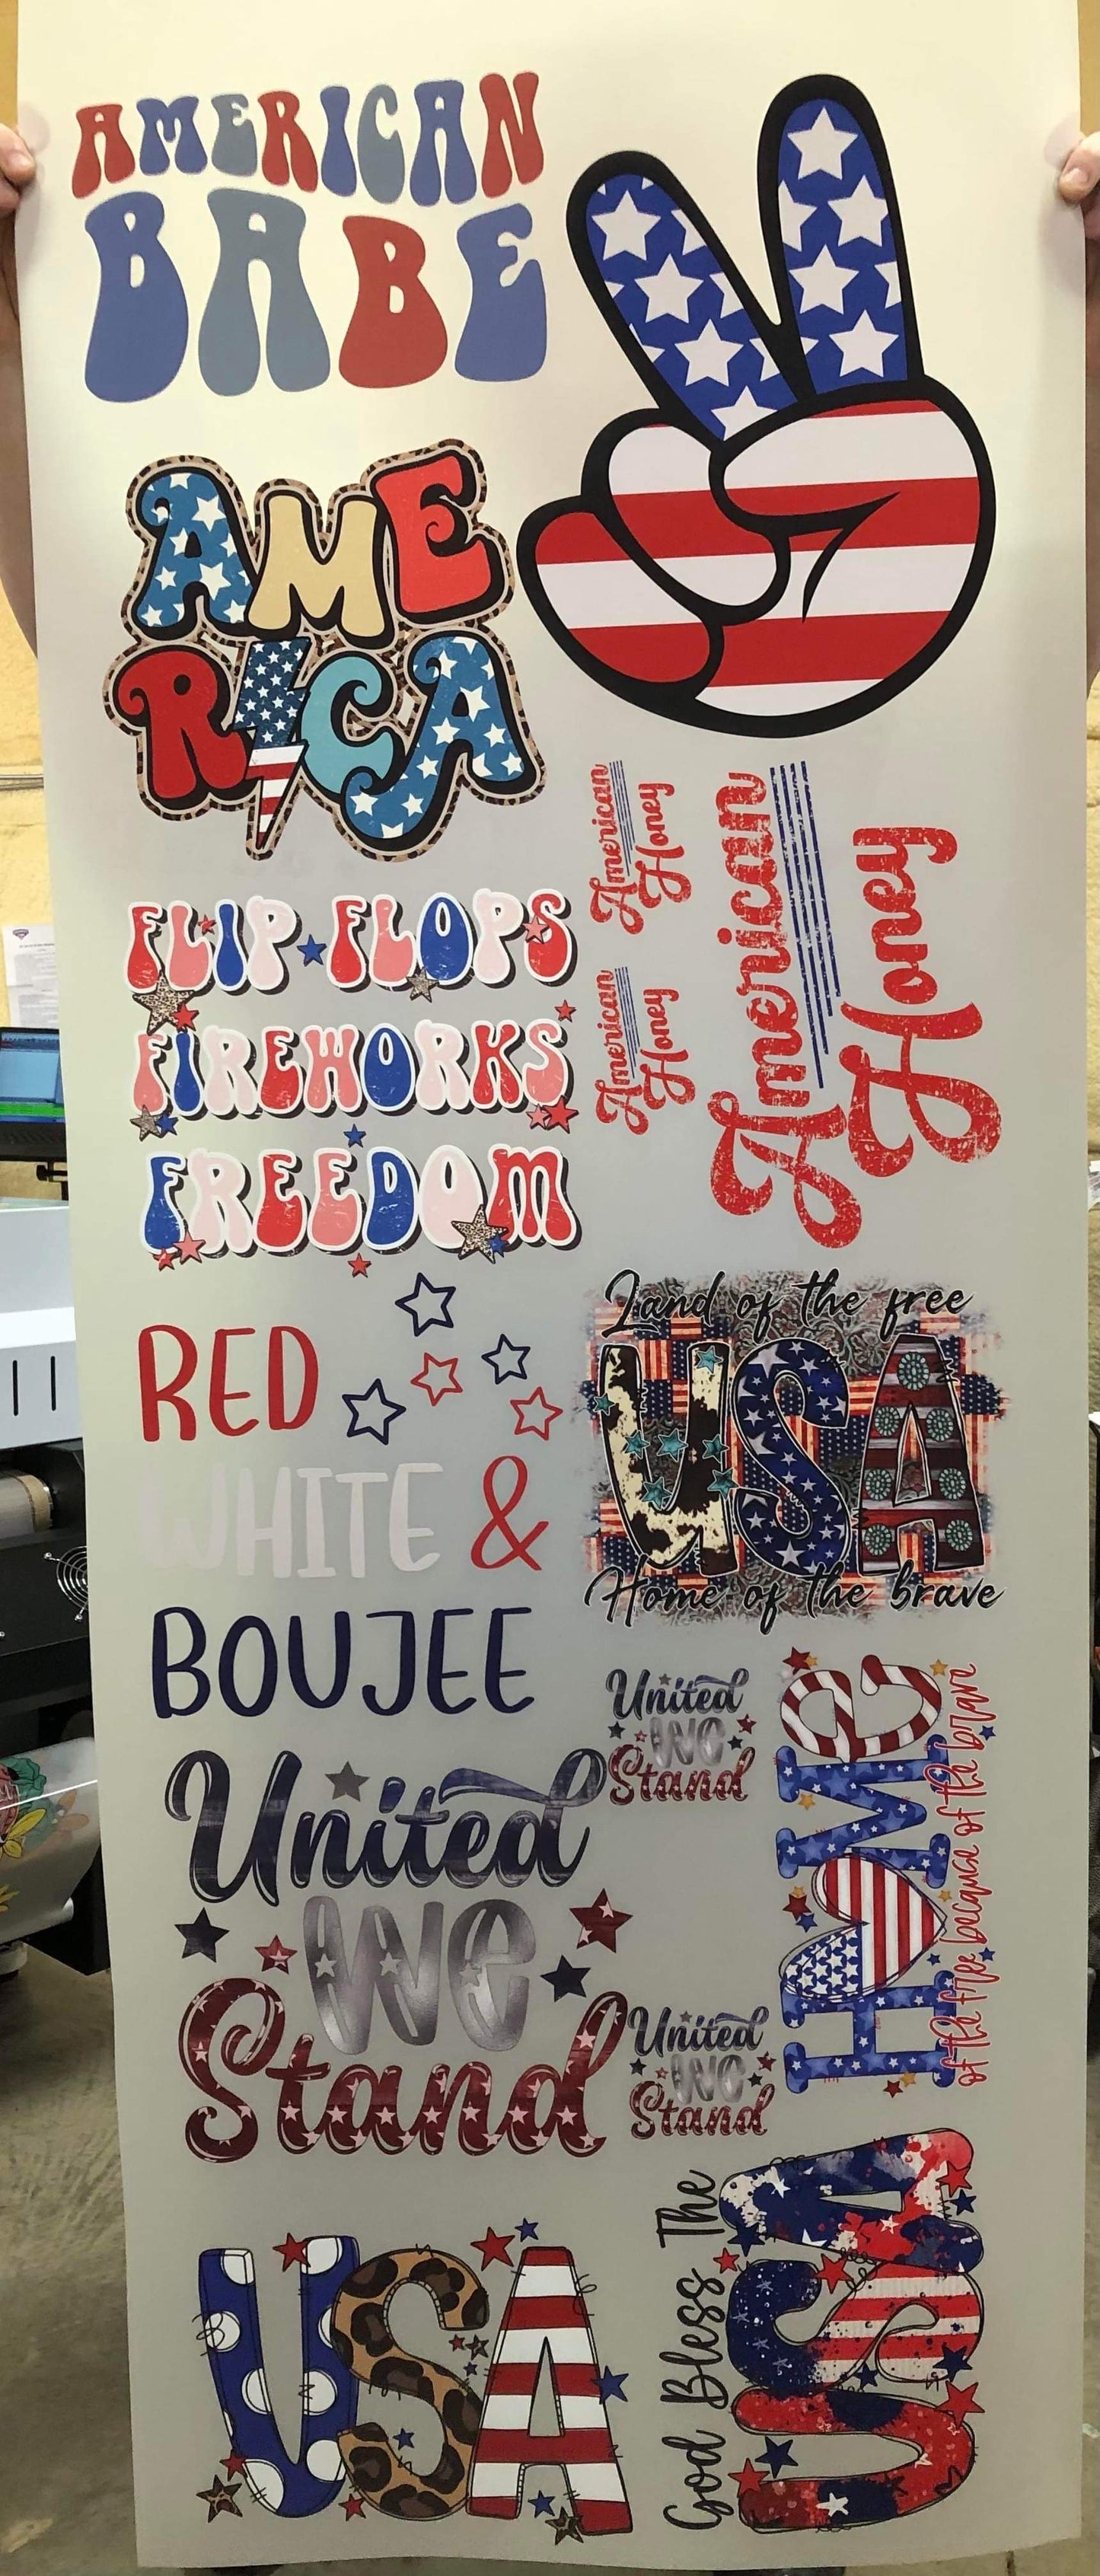 AMERICAN
BABE
AME
RICA
FLIP FLOPS
FIREWORKS
FREEDOM
American
Honey
American
Honey
American
Honey
RED
WHITE &
BOUJEE
Land of the free
USA
Home of the brave
United
We
Stand
United
We
Stand
HOME
of the free because of the brave
United
We
Stand
USA
God Bless The
USA